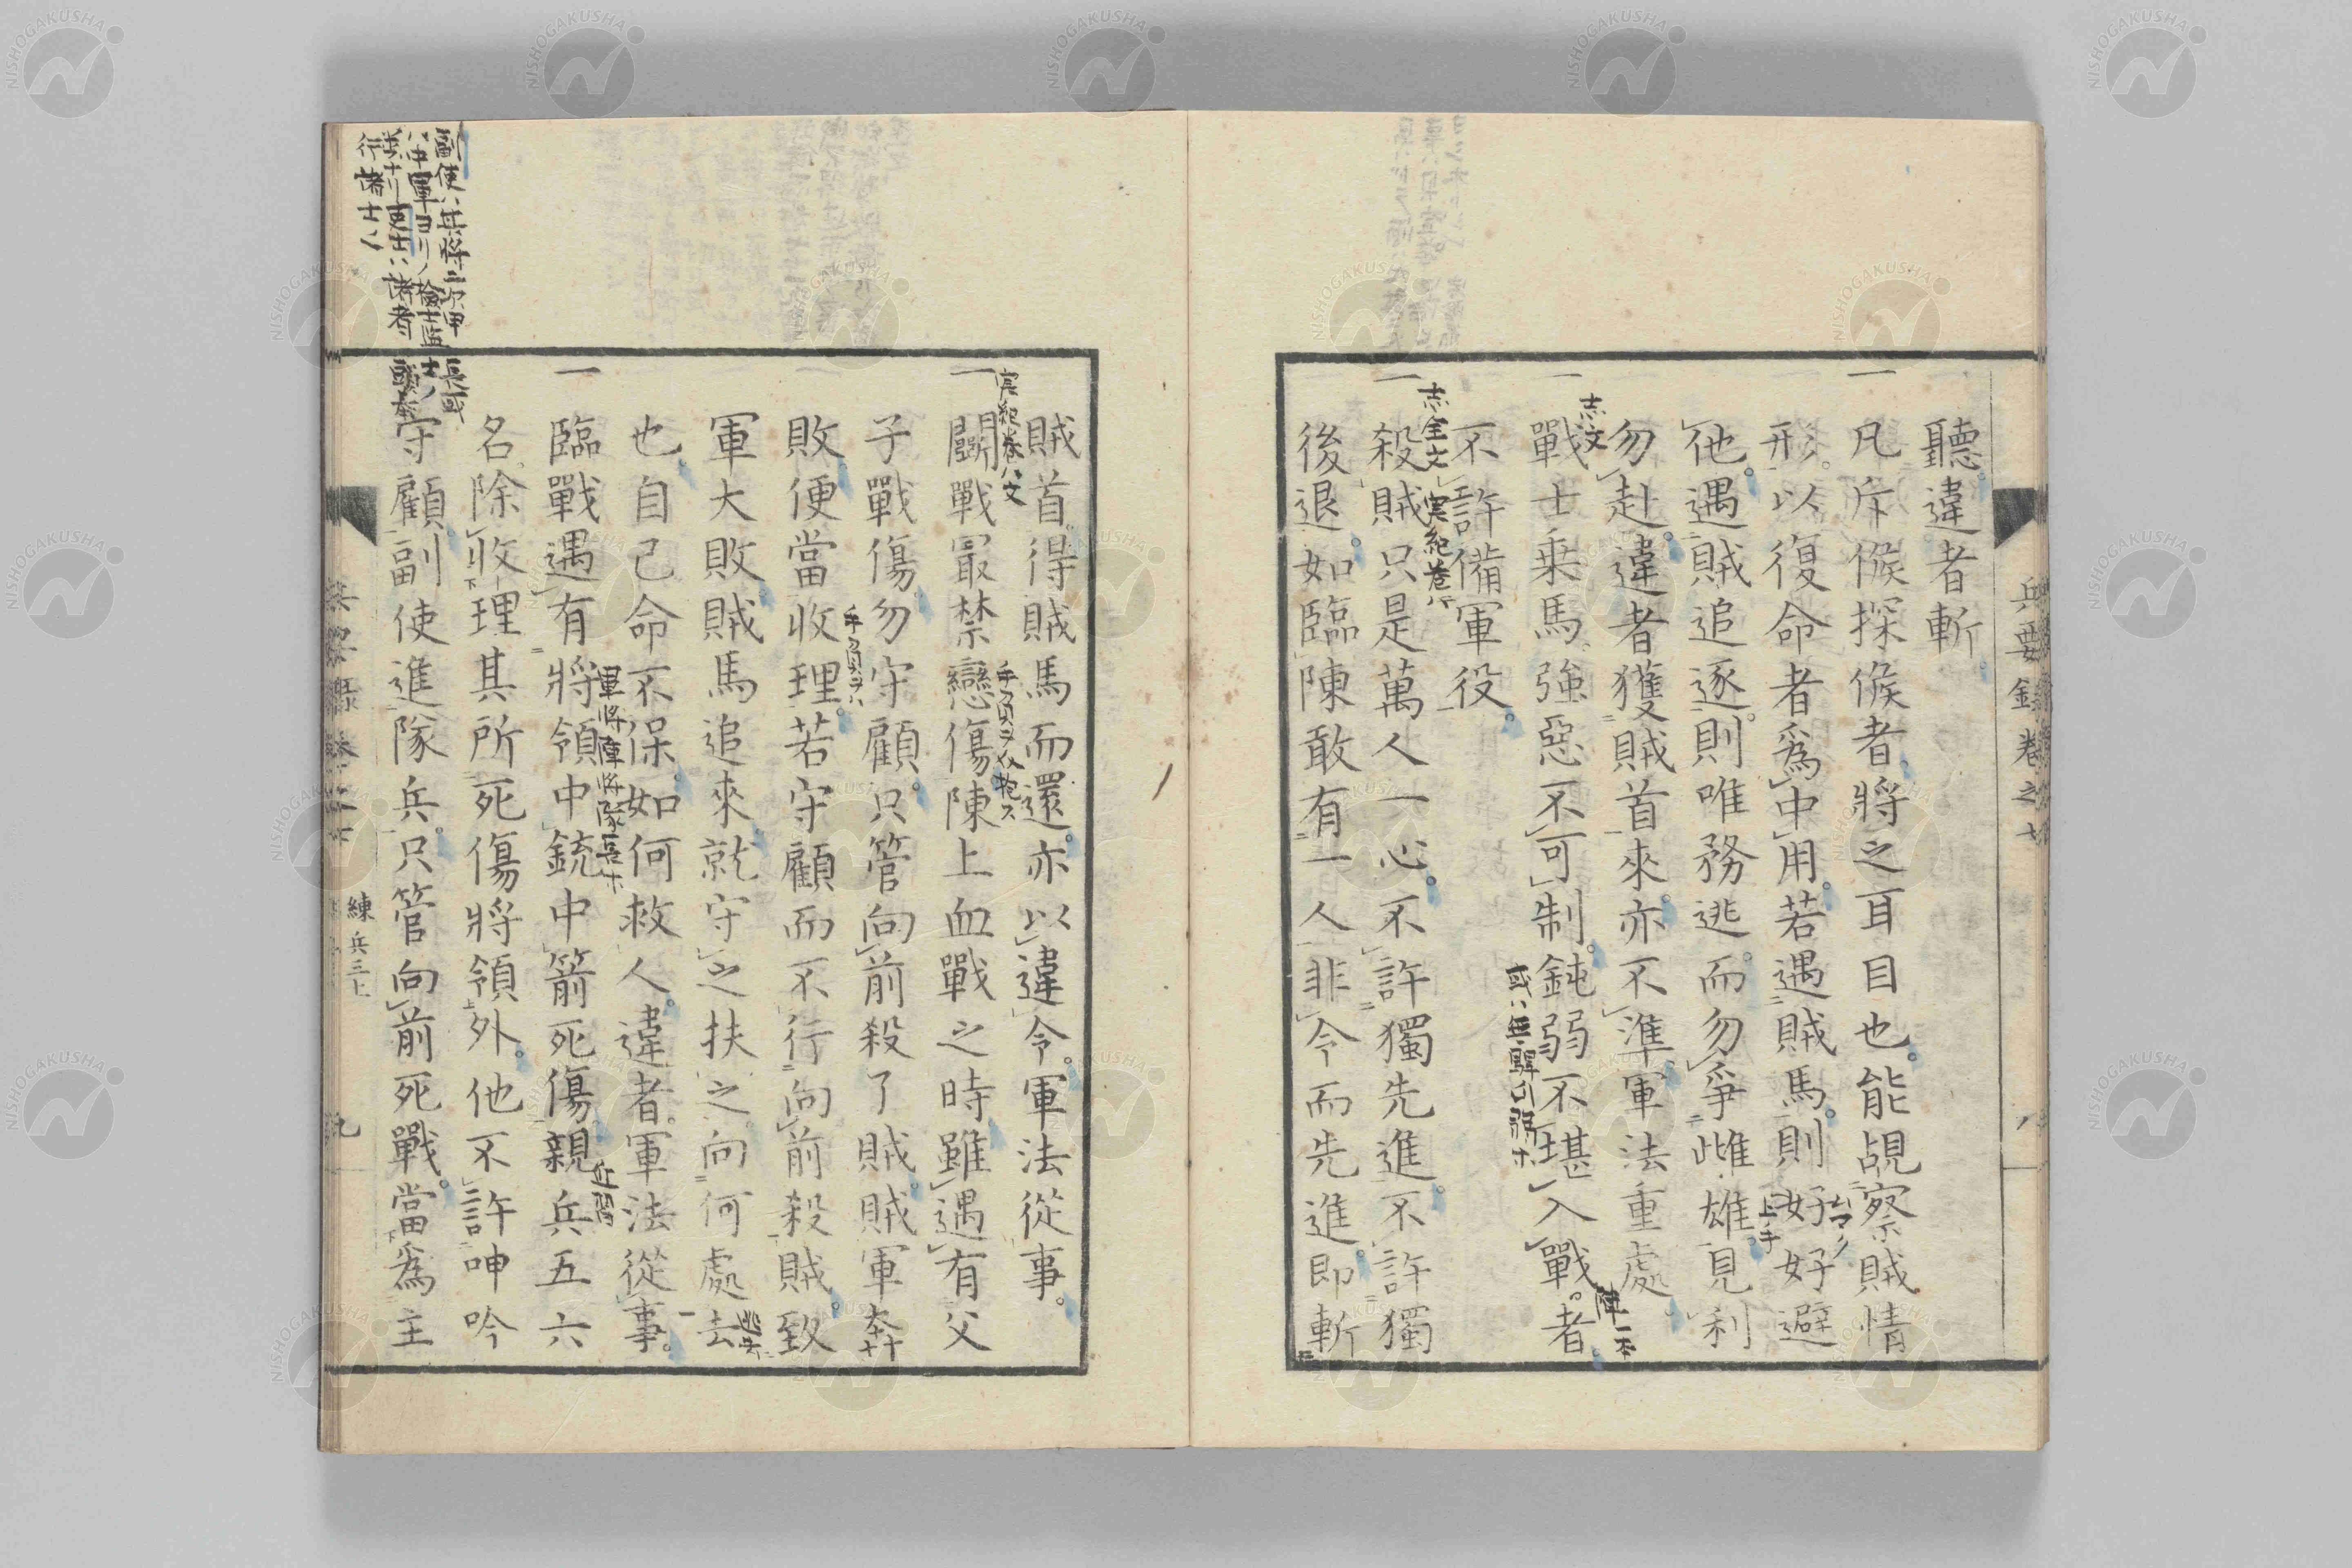 兵要録卷之七
聽違者斬
一凡斥候探候者將之耳目也能覘察賊情
形以復命者爲中用若遇賊馬則好好避
他遇賊追逐則唯務逃而勿爭雌雄見利
勿赴違者獲賊首來亦不準軍法重處
一戰士乗馬強惡不可制鈍弱不堪入戰者
不許備軍役
一殺賊只是萬人一心不許獨先進不許獨
後退如臨陳敢有一人非令而先進即斬
志文
志全文
実紀卷八
上手
賊首得賊馬而還亦以違令軍法從事
一鬬戰冣禁戀傷陳上血戰之時雖遇有父
子戰傷勿守顧只管向前殺了賊賊軍大
敗便當收理若守顧而不行向前殺賊致
軍大敗賊馬追來就守之扶之向何處去
也自己命不保如何救人違者軍法從事
一臨戰遇有將領中銃中箭死傷親兵五六
名除收理其所死傷將領外他不許呻吟
守顧副使進隊兵只管向前死戰當爲主
実紀卷八文
軍將陣將隊長ホ
近習
練兵三上
九